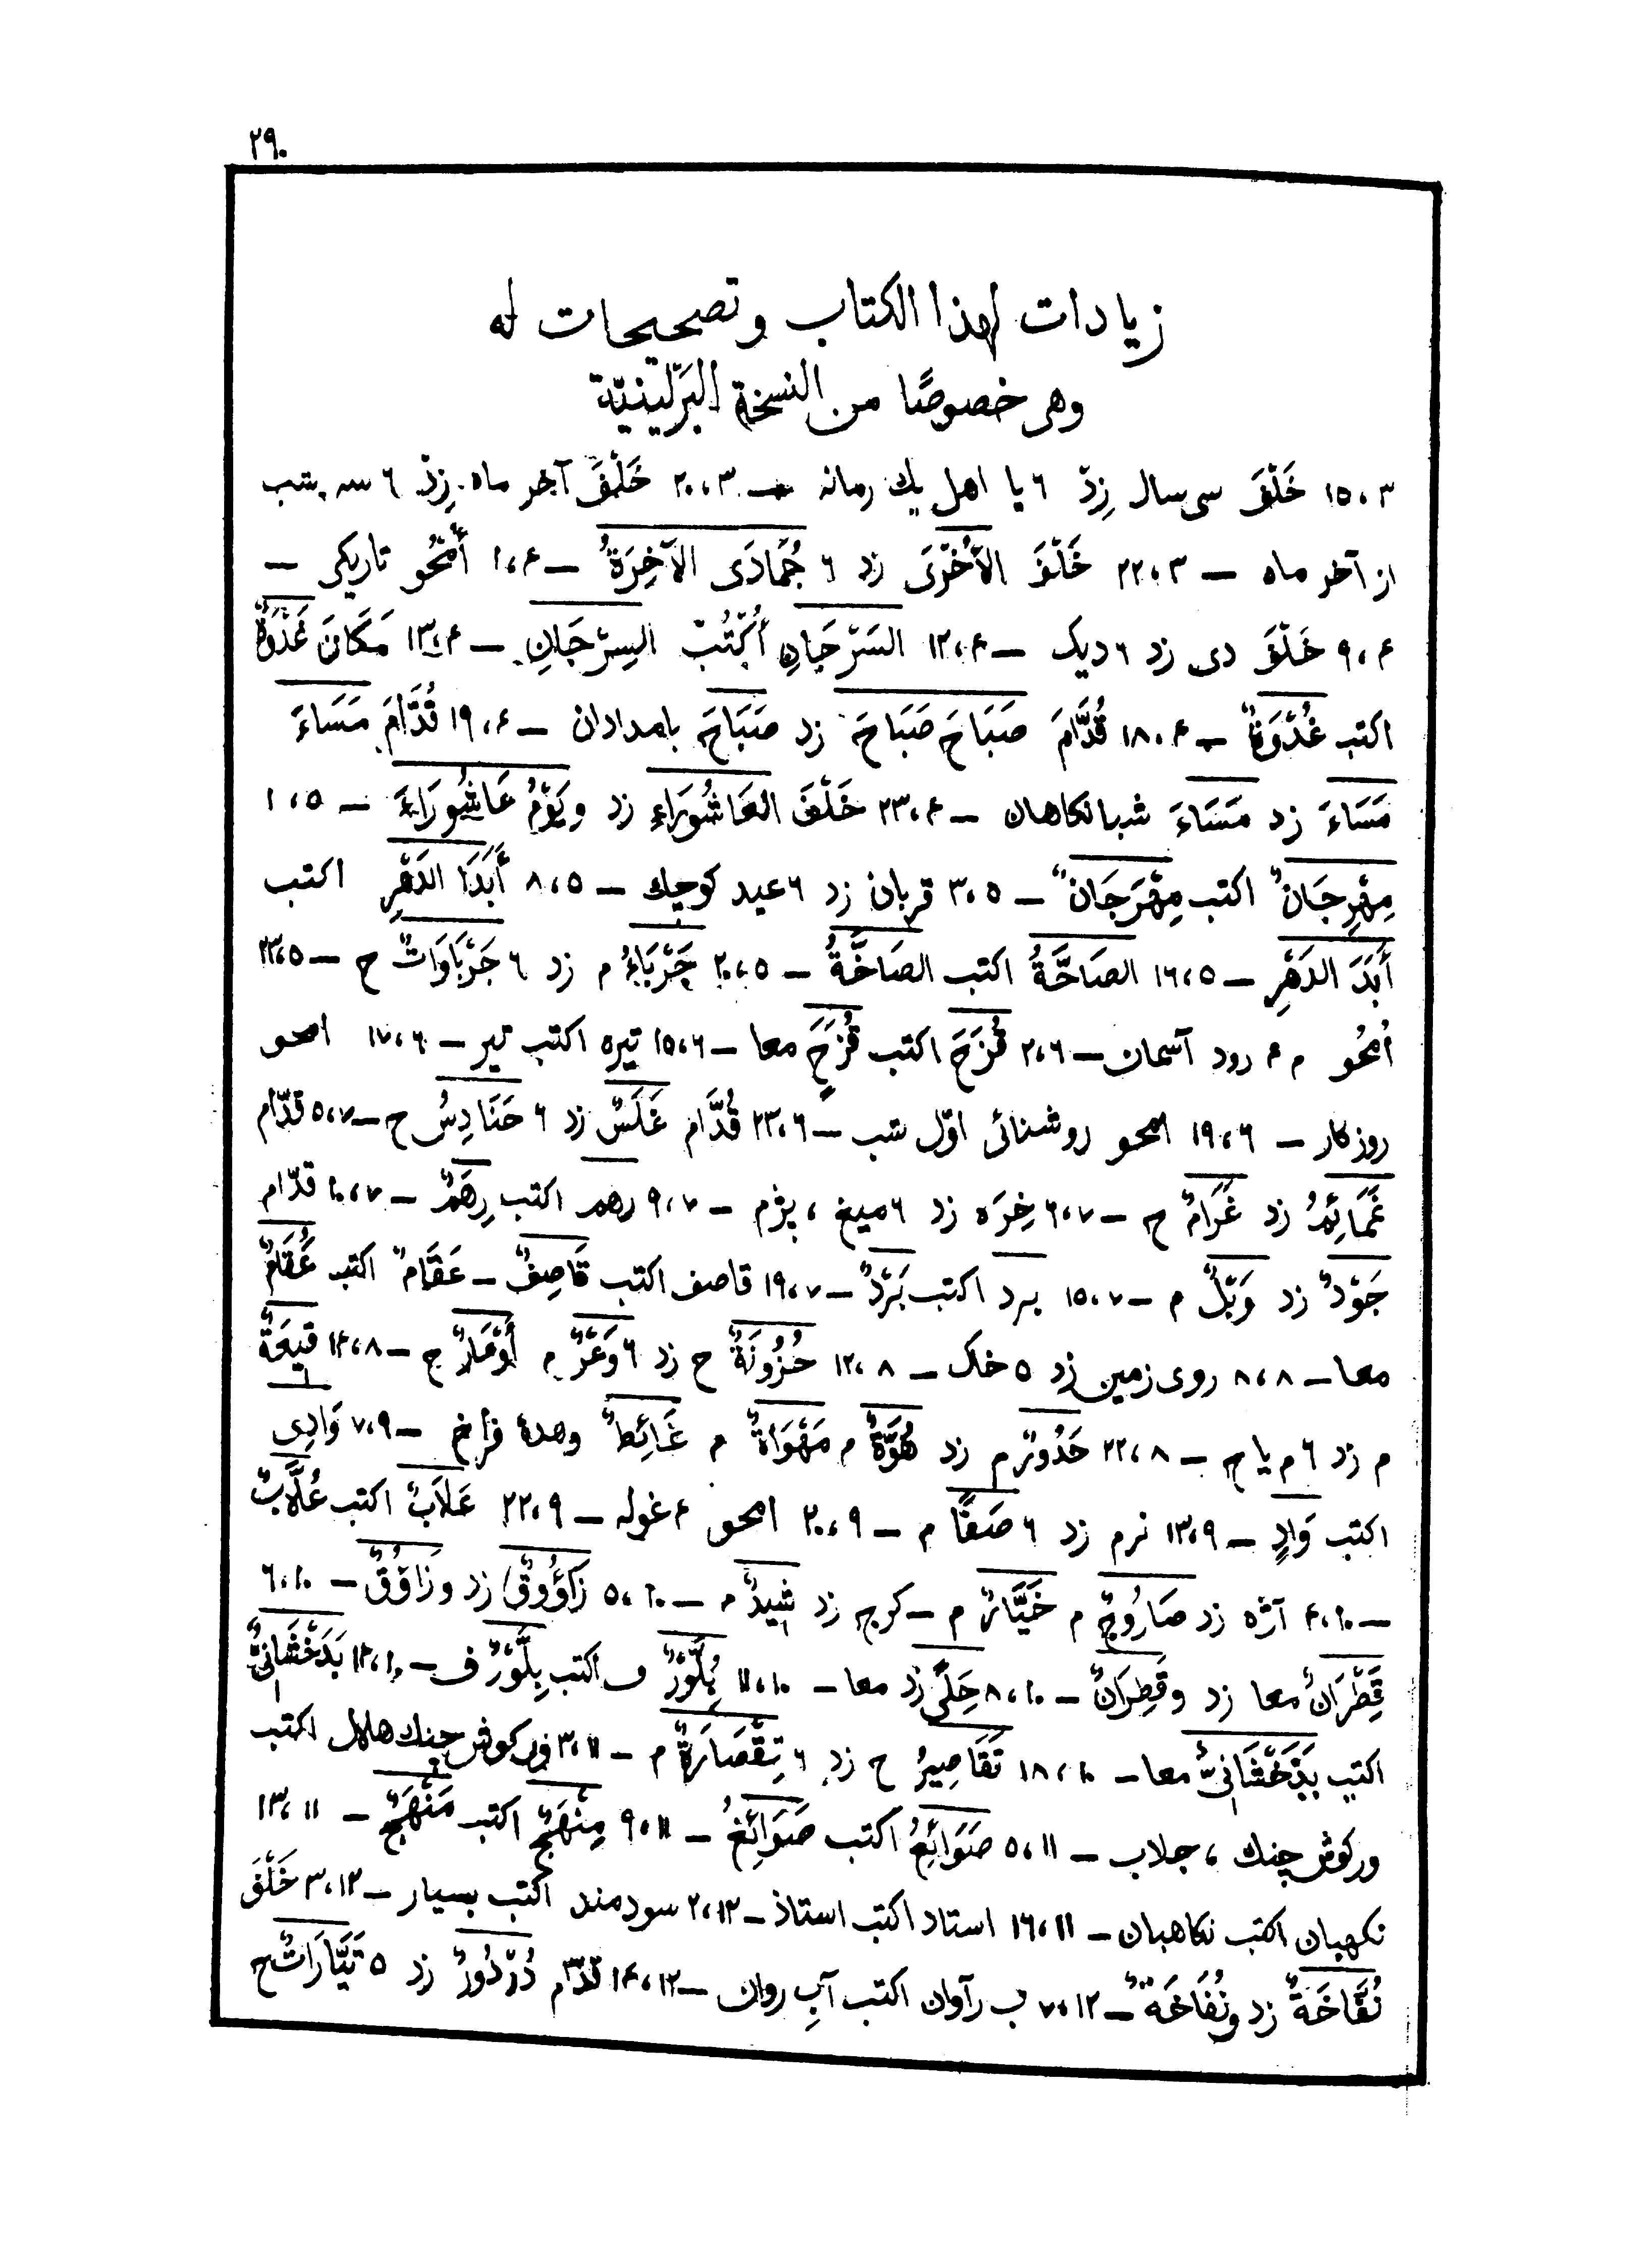 ٢٩٠
زيادات لهذا الكتاب وتصحيحات له
وهى خصوصًا من النسخة البَرْلِينِيّة
١٥،٣ خَلْفَ سى سال زِدْ ٦ يا اهل يك زمانه — ٢٠،٣ خَلْفَ آخر ماه زِدْ ٦ سه شب
از آخر ماه — ٢٢،٣ خَلْفَ الأُخْرَى زد ٦ جُمَادَى الآخِرَةُ — ١،۴ أُمْحُو تاريكى —
٩،۴ خَلْفَ دى زد ٦ ديك — ١٢،۴ السَرْحَانِ أُكْتُبْ السِرْحَانِ — ١٣،۴ مَكَانَ غَدْوَةٌ
اكتب غُدْوَةٌ — ١٨،۴ قُدَّامَ صَبَاحَ صَبَاحَ زد صَبَاحَ بامدادان — ١٩،۴ قُدَّامَ مَسَاءَ
مَسَاءَ زد مَسَاءَ شبانكاهان — ٢٣،۴ خَلْفَ العَاشُورَاءِ زد ويَوْمُ عَاشُورَاءَ — ١،٥
مِهْرِجَانٌ اكتب مِهْرَجَانٌ — ٣،٥ قربان زد ٦ عيد كوچك — ٨،٥ أَبَدَا الدَهْرِ اكتب
أَبَدَ الدَهْرِ — ١٦،٥ الصَاحَّةُ اكتب الصَاخَّةُ — ٢٠،٥ جَرْبَاءُ م زد ٦ جَرْبَاوَاتٌ ح — ٢٣،٥
أمحُو م ۴ رود آسمان — ٢،٦ قُزَحَ اكتب قُزَحٍ معا — ١٥،٦ تيره اكتب تير — ١٧،٦ امحو
روزكار — ١٩،٦ امحو روشنائى اوّل شب — ٢٣،٦ قُدَّام غَلَسٌ زد ٦ حَنَادِسُ ح — ٥،٧ قدّام
غَمَائِمُ زد غَرَامٌ ح — ٦،٧ خِرَه زد ٦ ميغ ، بژم — ٩،٧ رهم اكتب رِهَمٌ — ١٠،٧ قدّام
جَوْدٌ زد وَبْلٌ م — ١٥،٧ برد اكتب بَرَدٌ — ١٩،٧ قاصف اكتب قَاصِفٌ — عَقَامٌ اكتب عُقَامٌ
معا — ٨،٨ روى زمين زد ٥ خاك — ١٢،٨ حُزُونَةٌ ح زد ٦ وَعْرٌ م أَوْعَارٌ ج — ١۴،٨ قِيعَةٌ
م زد ٦ م يا ج — ٢٢،٨ حَدُورٌ م زد هُوَّةٌ م مَهْوَاةٌ م غَائِطٌ وهدهٔ فراخ — ٧،٩ وَادِى
اكتب وَادٍ — ١٣،٩ نرم زد ٦ صَفًّا م — ٢٠،٩ امحو ۴ غوله — ٢٢،٩ عَلَابٌ اكتب عُلَّابٌ
— ۴،١٠ آژه زد صَارُوجٌ م خَيَّارٌ م — كرج زد شِيدٌ م — ٥،١٠ زَاؤُوقٌ زد وزَاوُقٌ — ٦،١٠
قَطْرَانٌ معا زد وقَطِرَانٌ — ٨،١٠ حِلًى زد معا — ١١،١٠ بُلَّوْرٌ ف اكتب بِلَّوْرٌ ف — ١۴،١٠ بَدَخْشَانِىٌّ
اكتب بَذَخْشَانِىٌّ معا — ١٨،١٠ تَقَاصِيرُ ح زد ٦ تِقْصَارَةٌ م — ٣،١١ وركوش چنك هلال اكتب
وركوش چنك ، جلاب — ٥،١١ صَوَائِعُ اكتب صَوَائِغُ — ٩،١١ مِنْهَجٌ اكتب مَنْهَجٌ — ١٣،١١
نكهبان اكتب نكاهبان — ١٦،١١ استاد اكتب استاذ — ٢،١٢ سودمند اكتب بسيار — ٣،١٢ خَلْفَ
نُفَّاخَةٌ زد ونُفَاخَةٌ — ٧،١٢ ب رآوان اكتب آبِ روان — ١۴،١٢ قدّام دُرْدُورٌ زد ٥ تَيَّارَاتٌ ح